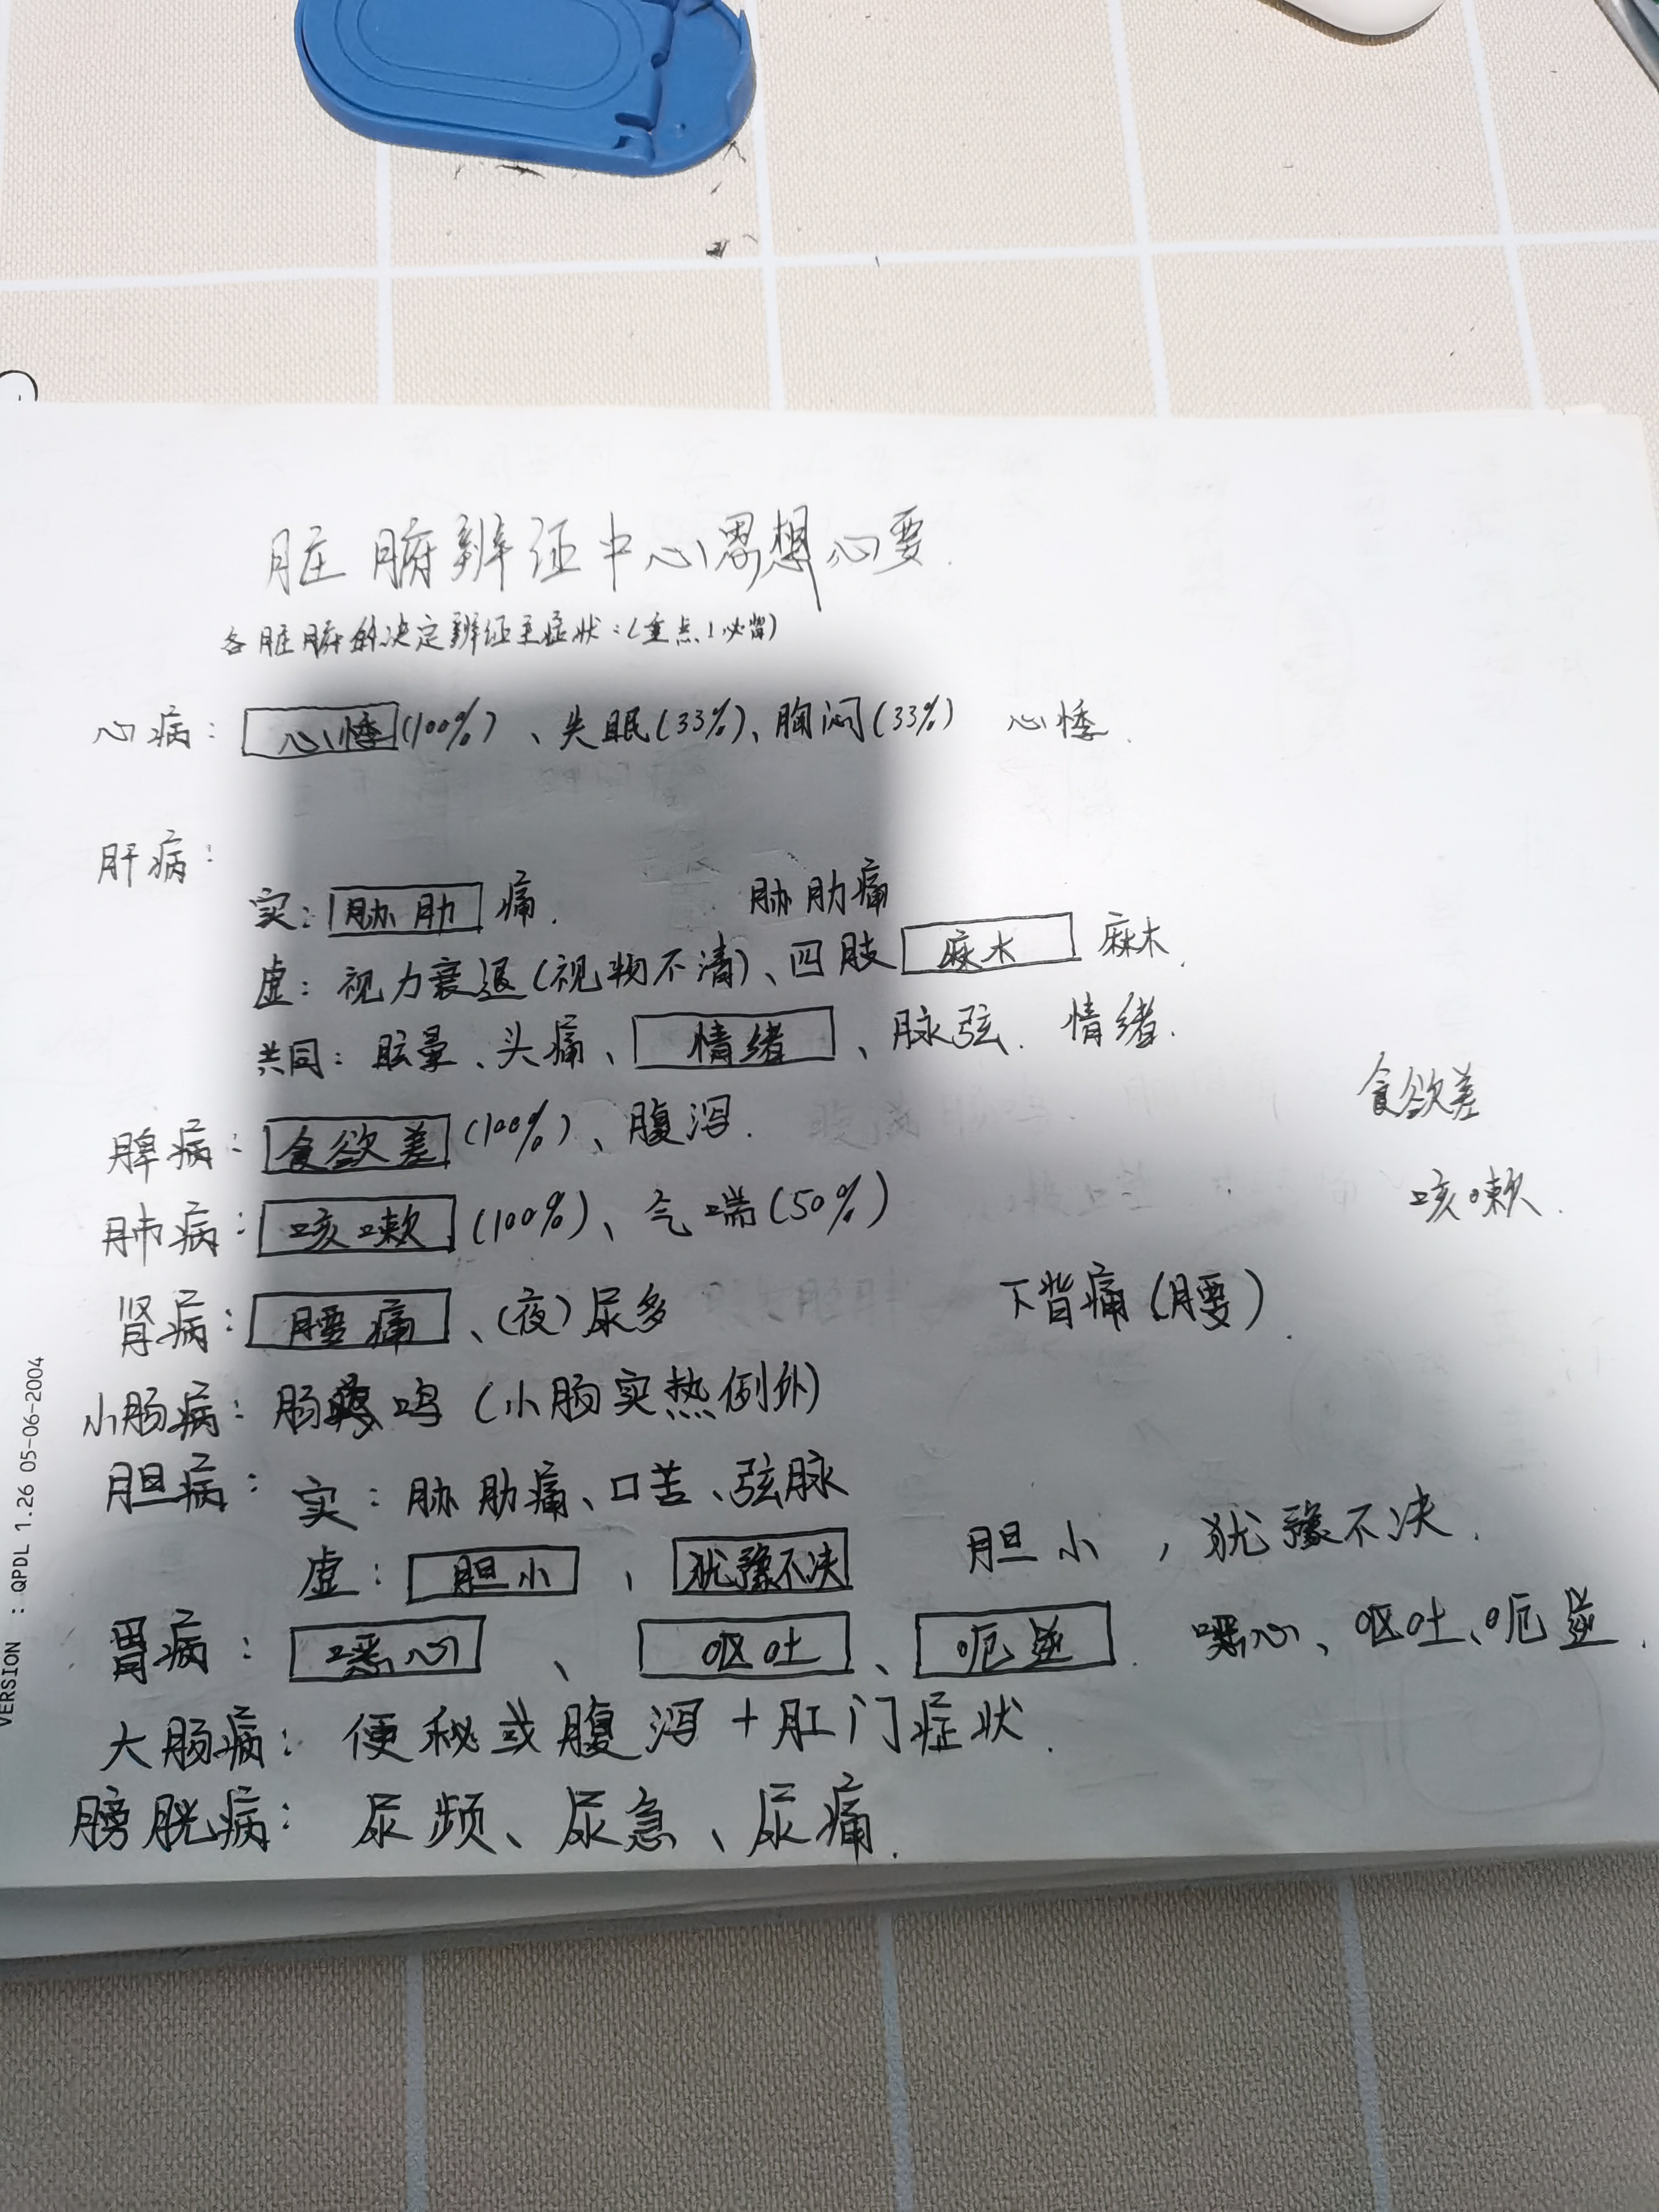 脏腑辨证中心思想心要.
各脏腑的决定辨证主症状:(重点!必背)
心病: 心悸(100%)、失眠(33%)、胸闷(33%) 心悸.
肝病:
实: 胁肋痛. 胁肋痛
虚: 视力衰退(视物不清)、四肢麻木 麻木.
共同: 眩晕、头痛、情绪、脉弦. 情绪.
食欲差
脾病: 食欲差(100%)、腹泻.
咳嗽.
肺病: 咳嗽(100%)、气喘(50%)
肾病: 腰痛、(夜)尿多 下背痛(腰).
小肠病: 肠鸣(小肠实热例外)
胆病: 实: 胁肋痛、口苦、弦脉
虚: 胆小、犹豫不决 胆小,犹豫不决.
胃病: 噁心、呕吐、呃逆. 噁心、呕吐、呃逆.
大肠病: 便秘或腹泻+肛门症状.
膀胱病: 尿频、尿急、尿痛.
VERSION : QPDL 1.26 05-06-2004